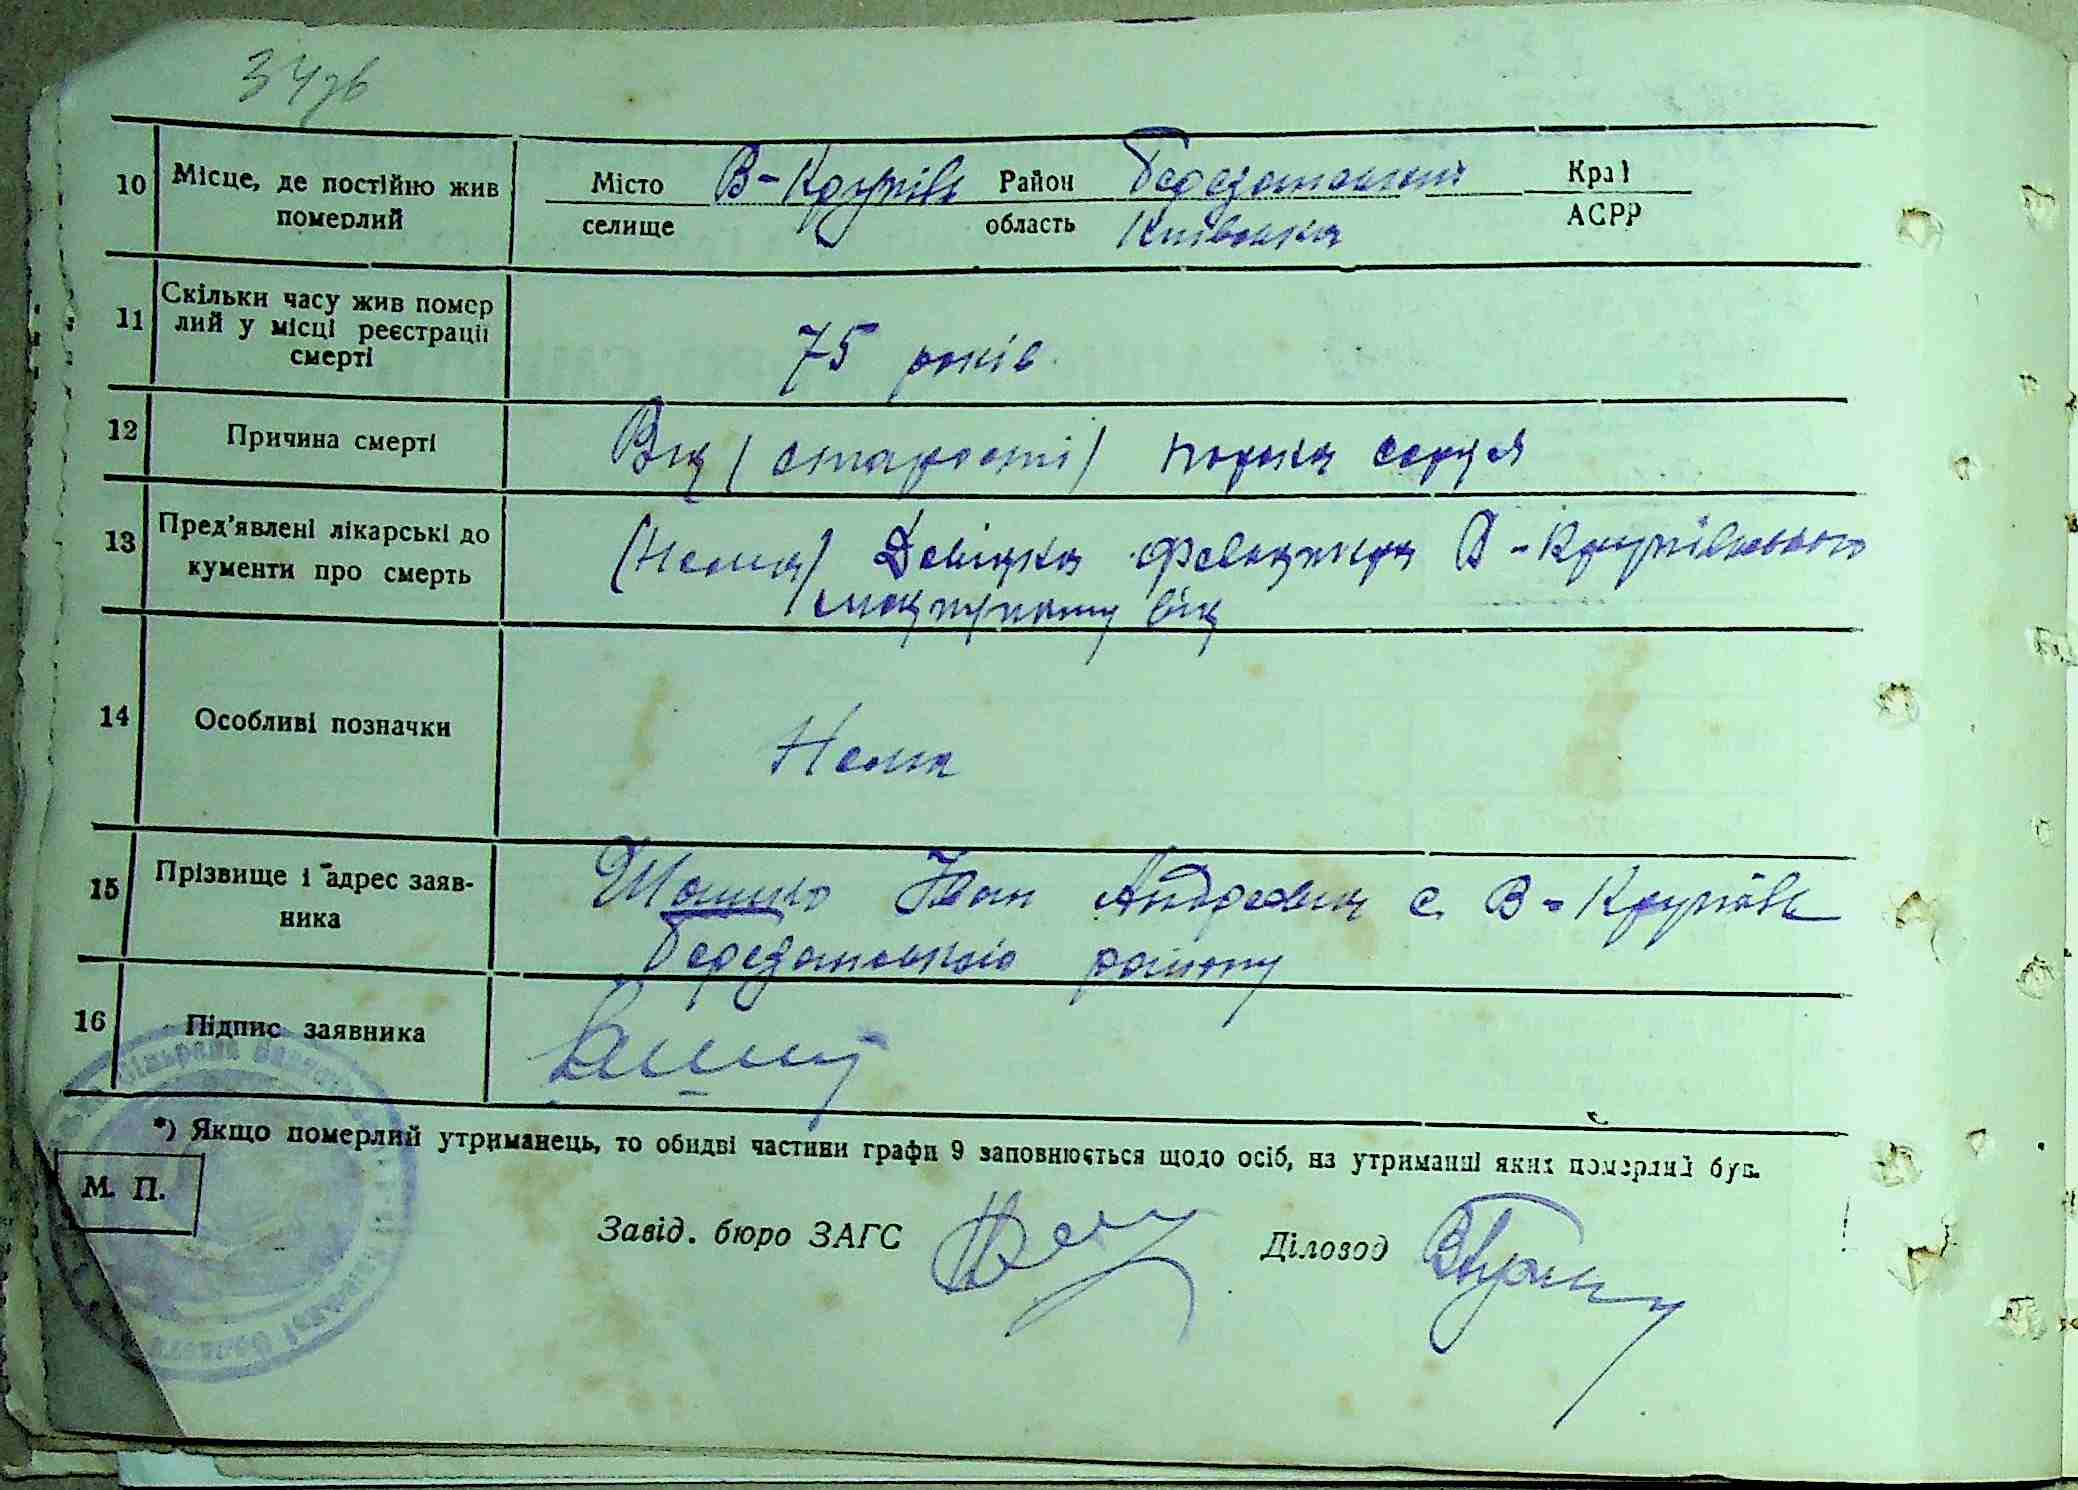 34зв
10 Місце, де постійно жив Місто В-Крупіль Район Березанський Краї
померлий селище область Київська АСРР
11 Скільки часу жив помер
лий у місці реєстрації
смерті 75 років
12 Причина смерті Від (старості) порока серця
13 Пред'явлені лікарські до
кументи про смерть (Нема) Довідка фельдшера В-Крупільського
медпункту від
14 Особливі позначки Нема
15 Прізвище і адрес заяв-
ника Іван Андреевич с. В-Крупіль
Березанського району
16 Підпис заявника
*) Якщо померлий утриманець, то обидві частини графи 9 заповнюється щодо осіб, на утриманні яких померлий був.
М. П.
Завід. бюро ЗАГС Діловод